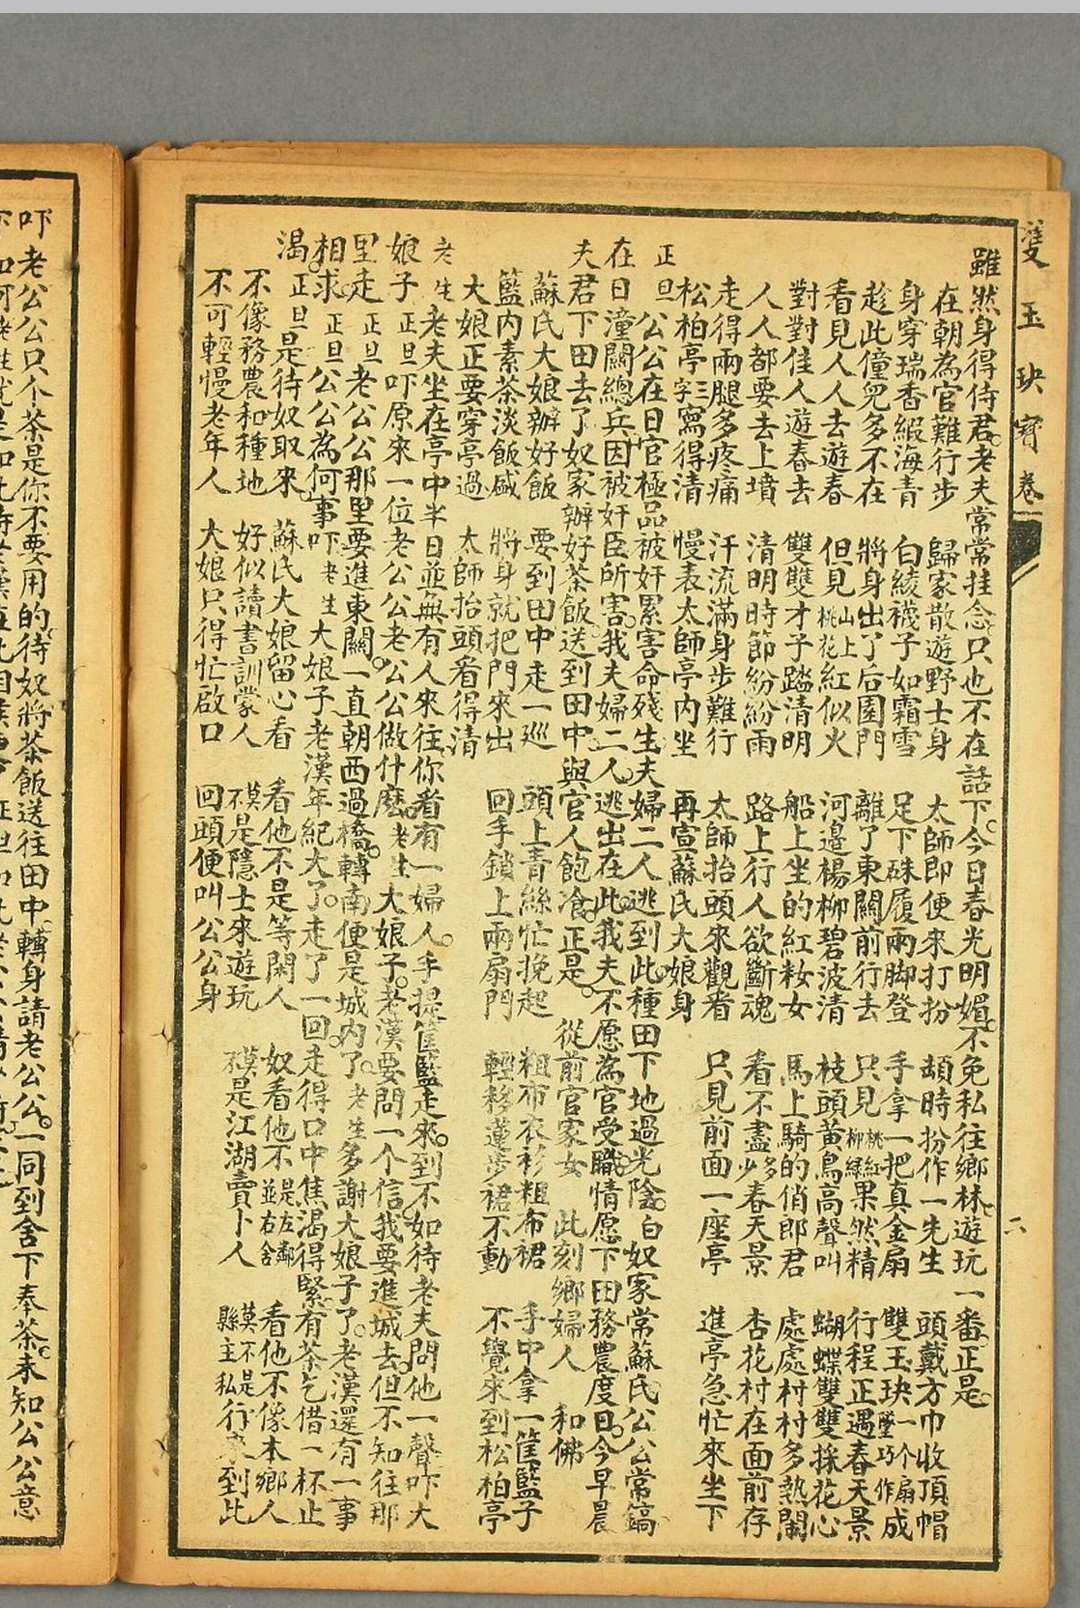 雙玉玦寶卷
六
雖然身得侍君老夫常常挂念只也不在話下今日春光明媚不免私往鄉林遊玩一番正是
在朝為官難行步 歸家散遊野士身 太師即便來打扮 頡時扮作一先生 頭戴方巾收頂帽
身穿瑞香緞海青 白綾襪子如霜雪 足下硃履兩脚登 手拿一把真金扇 雙玉玦墜一个巧扇作成
趁此僮兒多不在 將身出了后園門 離了東關前行去 只見桃紅柳綠果然精 行程正遇春天景
看見人人去遊春 但見山上桃花紅似火 河邊楊柳碧波清 枝頭黃鳥高聲叫 蝴蝶雙雙採花心
對對佳人遊春去 雙雙才子踏清明 船上坐的紅籹女 馬上騎的俏郎君 處處村村多熱鬧
人人都要去上墳 清明時節紛紛雨 路上行人欲斷魂 看不盡多少春天景 杏花村在面前存
走得兩腿多疼痛 汗流滿身步難行 太師抬頭來觀看 只見前面一座亭 進亭急忙來坐下
松柏亭三字寫得清 慢表太師亭內坐 再宣蘇氏大娘身
正旦 公公在日官極品被奸累害命殘生夫婦二人逃到此種田下地過光陰白奴家常蘇氏公公常鎬
在日潼關總兵因被奸臣所害我夫婦二人逃出在此我夫不愿為官受職情愿下田務農度日今早晨
夫君下田去了奴家辦好茶飯送到田中與官人飽飡正是 從前官家女 此刻鄉婦人 和佛
蘇氏大娘辦好飯 要到田中走一巡 頭上青絲忙挽起 粗布衣衫粗布裙 手中拿一筐籃子
籃內素茶淡飯盛 將身就把門來出 回手鎖上兩扇門 輕移蓮步裙不動 不覺來到松柏亭
大娘正要穿亭過 太師抬頭看得清
老生 老夫坐在亭中半日並無有人來往你看有一婦人手提筐籃走來到不如待老夫問他一聲吓大
娘子 正旦吓原來一位老公公老公公做什麽老生大娘子老漢要問一个信我要進城去但不知往那
里走 正旦老公公那里要進東關一直朝西過橋轉南便是城內了老生多謝大娘子了老漢還有一事
相求 正旦公公為何事吓老生大娘子老漢年紀大了走了一回走得口中焦渴得緊有茶乞借一杯止
渴 正旦是待奴取來 蘇氏大娘留心看 看他不是等閑人 奴看他不是左鄰並右舍 看他不像本鄉人
不像務農和種地 好似讀書訓蒙人 莫不是隱士來遊玩 莫不是江湖賣卜人 莫不是縣主私行來到此
不可輕慢老年人 大娘只得忙啟口 回頭便叫公公身
吓老公公只个茶是你不要用的待奴將茶飯送往田中轉身請老公公一同到舍下奉茶未知公公意